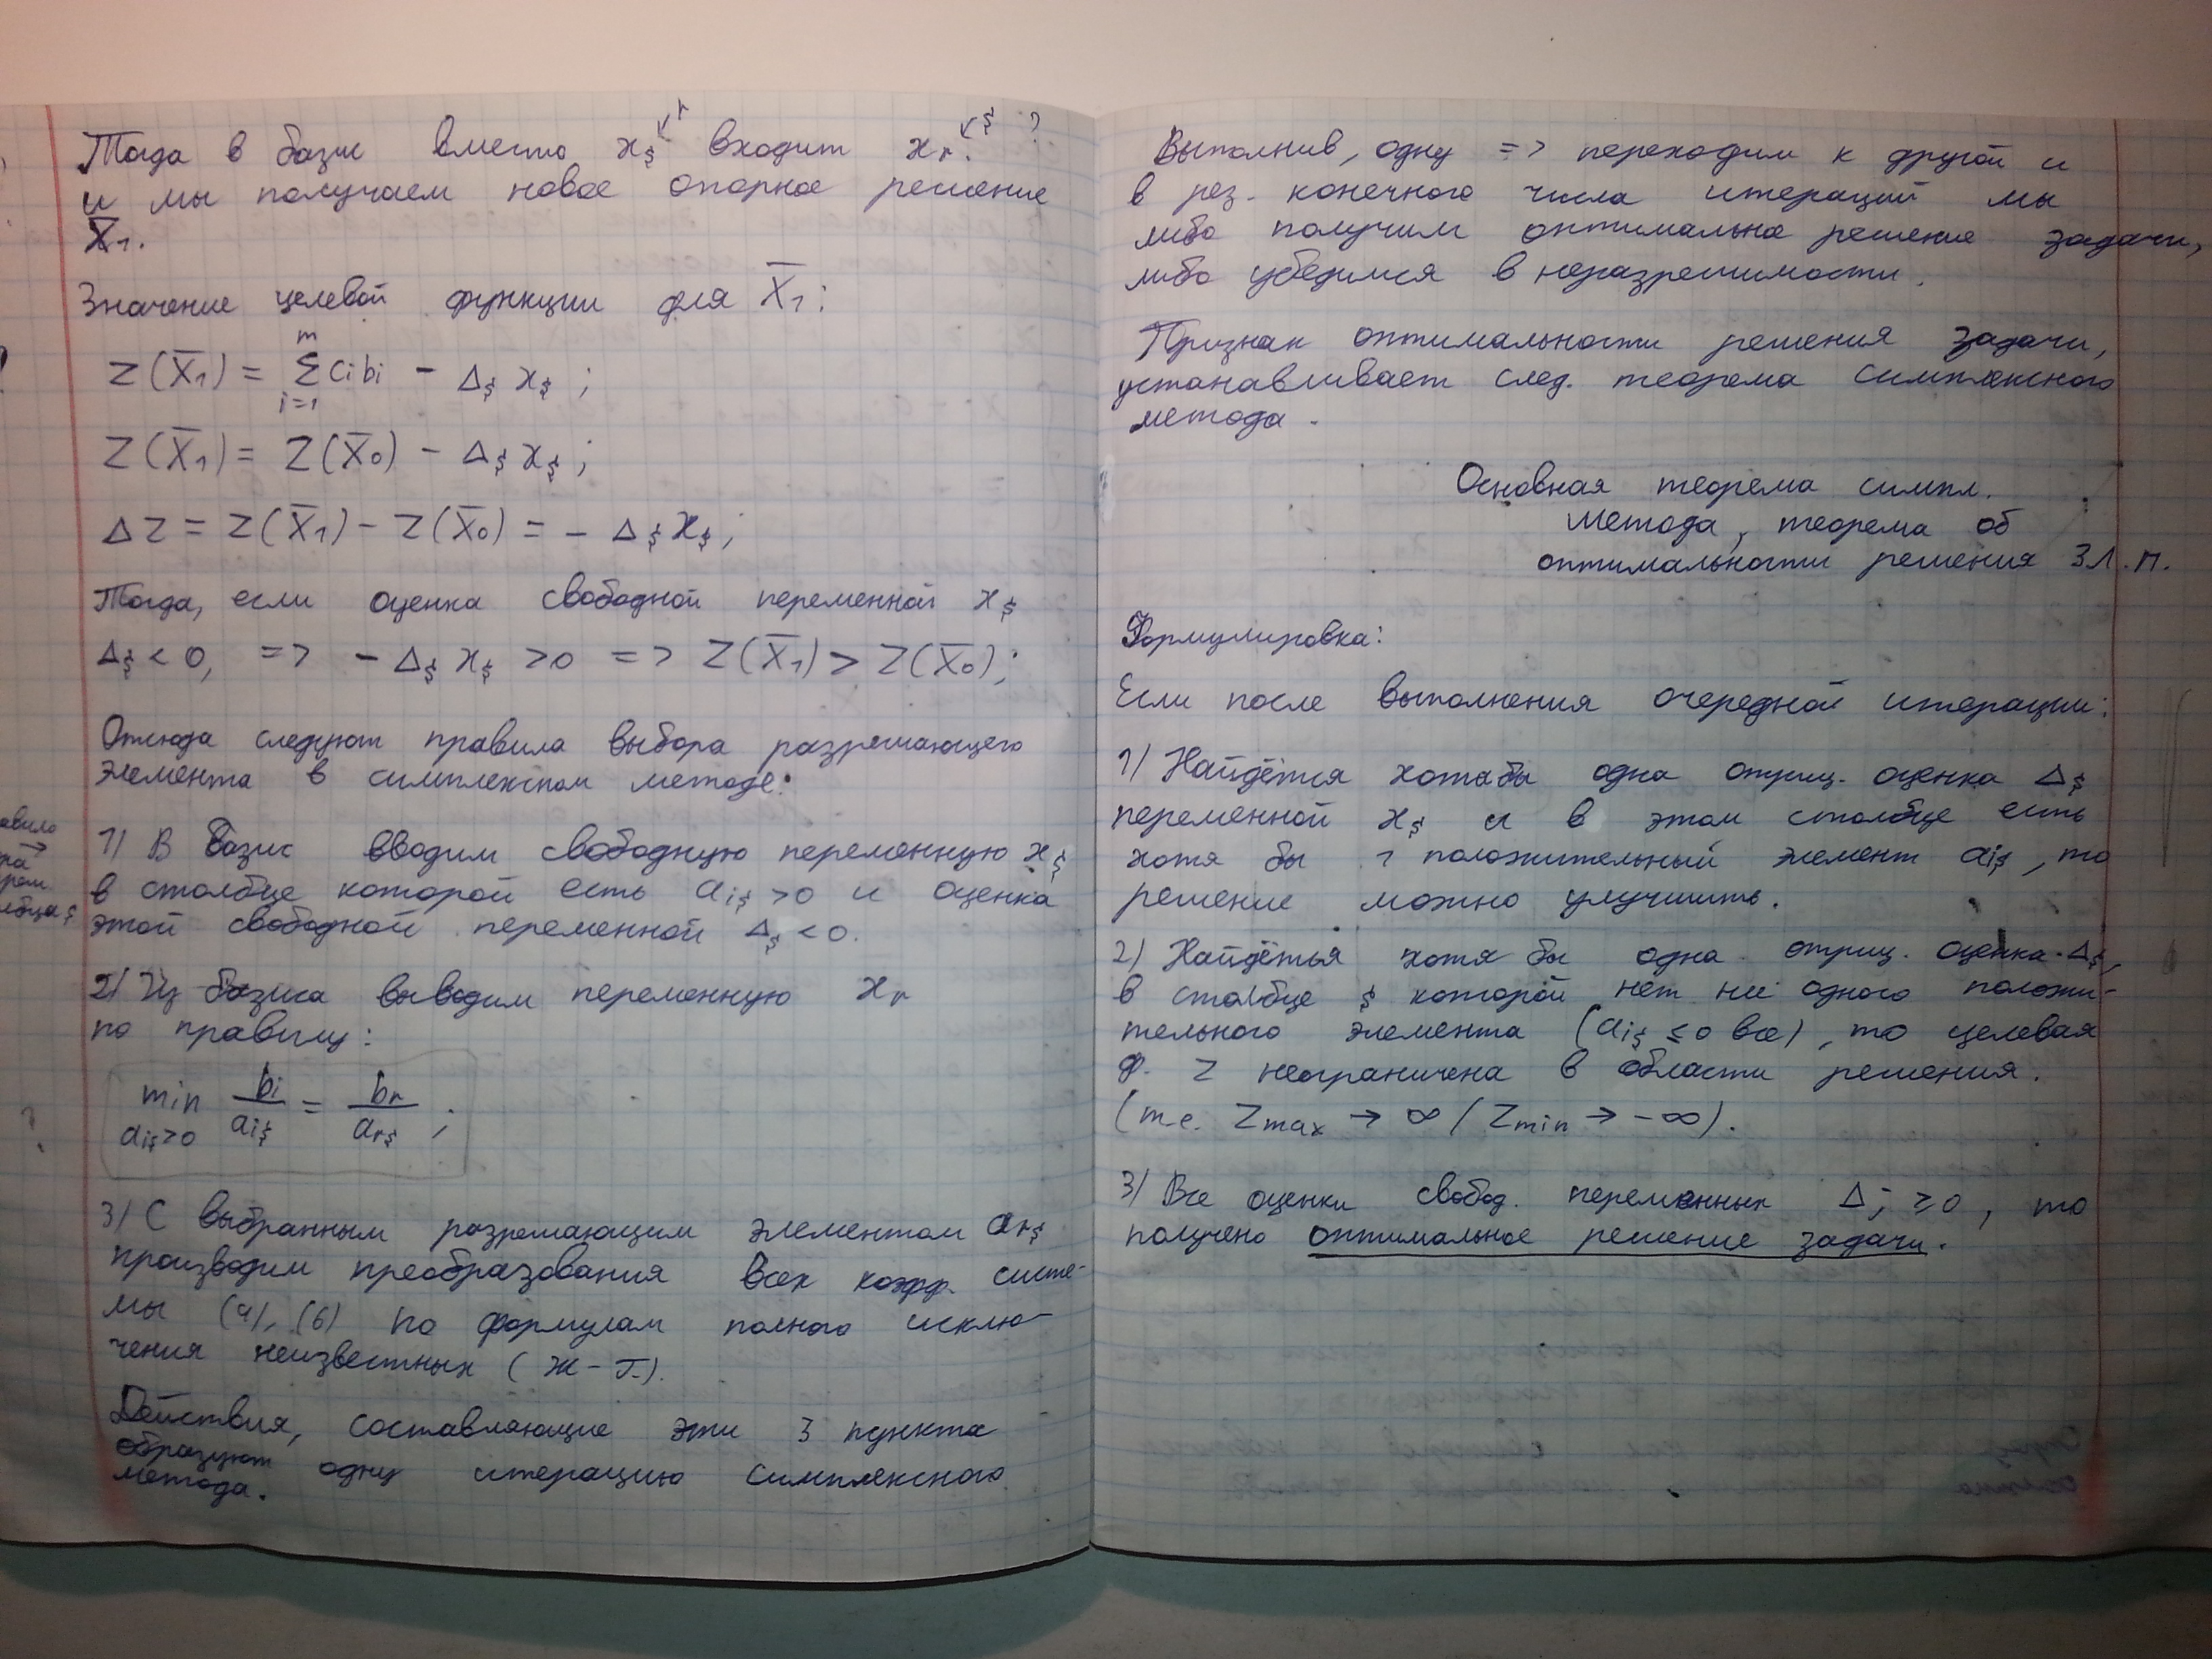 Тогда в базис вместо xₛ ↙r входит xᵣ. ↙s ?
и мы получаем новое опорное решение
X̅₁.
Значение целевой функции для X̅₁:
Z(X̅₁) = ∑ᵢ₌₁ᵐ cᵢbᵢ - Δₛ xₛ ;
Z(X̅₁) = Z(X̅₀) - Δₛ xₛ ;
ΔZ = Z(X̅₁) - Z(X̅₀) = - Δₛ xₛ ;
Тогда, если оценка свободной переменной xₛ
Δₛ < 0, => - Δₛ xₛ > 0 => Z(X̅₁) > Z(X̅₀);
Отсюда следуют правила выбора разрешающего
элемента в симплексном методе:
1) В базис вводим свободную переменную xₛ
в столбце которой есть aᵢₛ > 0 и оценка
этой свободной переменной Δₛ < 0.
2) Из базиса выводим переменную xᵣ
по правилу:
min aᵢₛ>0 bᵢ/aᵢₛ = bᵣ/aᵣₛ ;
3) С выбранным разрешающим элементом aᵣₛ
производим преобразования всех коэфф. систе-
мы (4), (6) по формулам полного исклю-
чения неизвестных (Ж-Г.).
Действия, составляющие эти 3 пункта
образуют одну итерацию симплексного
метода.
Выполнив, одну => переходим к другой и
в рез. конечного числа итераций мы
либо получим оптимальное решение задачи,
либо убедимся в неразрешимости.
Признак оптимальности решения задачи,
устанавливает след. теорема симплексного
метода.
Основная теорема симпл.
метода, теорема об
оптимальности решения З.Л.П.
Формулировка:
Если после выполнения очередной итерации:
1) Найдётся хотя бы одна отриц. оценка Δₛ
переменной xₛ и в этом столбце есть
хотя бы 1 положительный элемент aᵢₛ, то
решение можно улучшить.
2) Найдётся хотя бы одна отриц. оценка Δₛ,
в столбце s которой нет ни одного положи-
тельного элемента (aᵢₛ ≤ 0 все), то целевая
ф. Z неограничена в области решения.
(т.е. Zmax → ∞ / Zmin → -∞).
3) Все оценки свобод. переменных Δⱼ ≥ 0, то
получено оптимальное решение задачи.